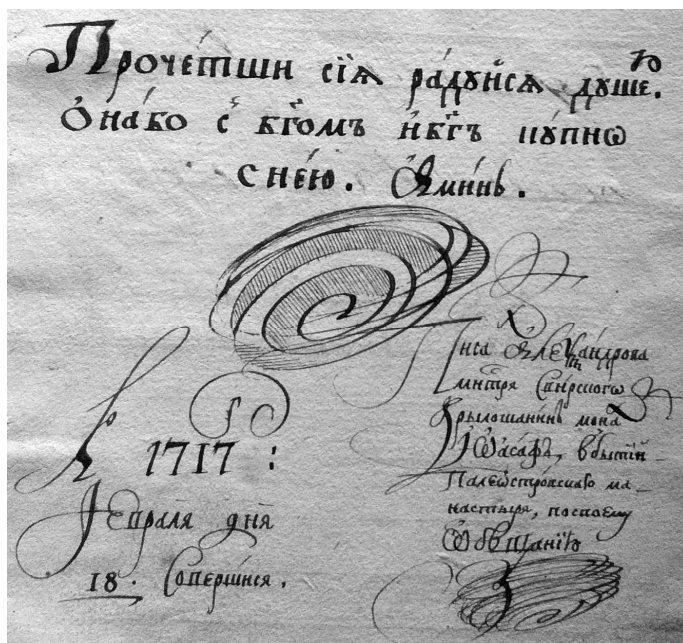 Прочетши сїѧ ра́дуйсѧ душею.
Ѻна́бо с̾ бг҃омъ и҆бг҃ъ купнѡ
сне́ю. А҆ми́нь.
Писа Алеѯандрова
мнстря Свирскогѡ
Крылошанинъ монах
Іѡаса́фъ, вбытїй
Палеѡстровскаго ма-
настыря, посвоему
Ѡбѣщанїю
1717 :
Февраля дня
18. Соверши́ся.